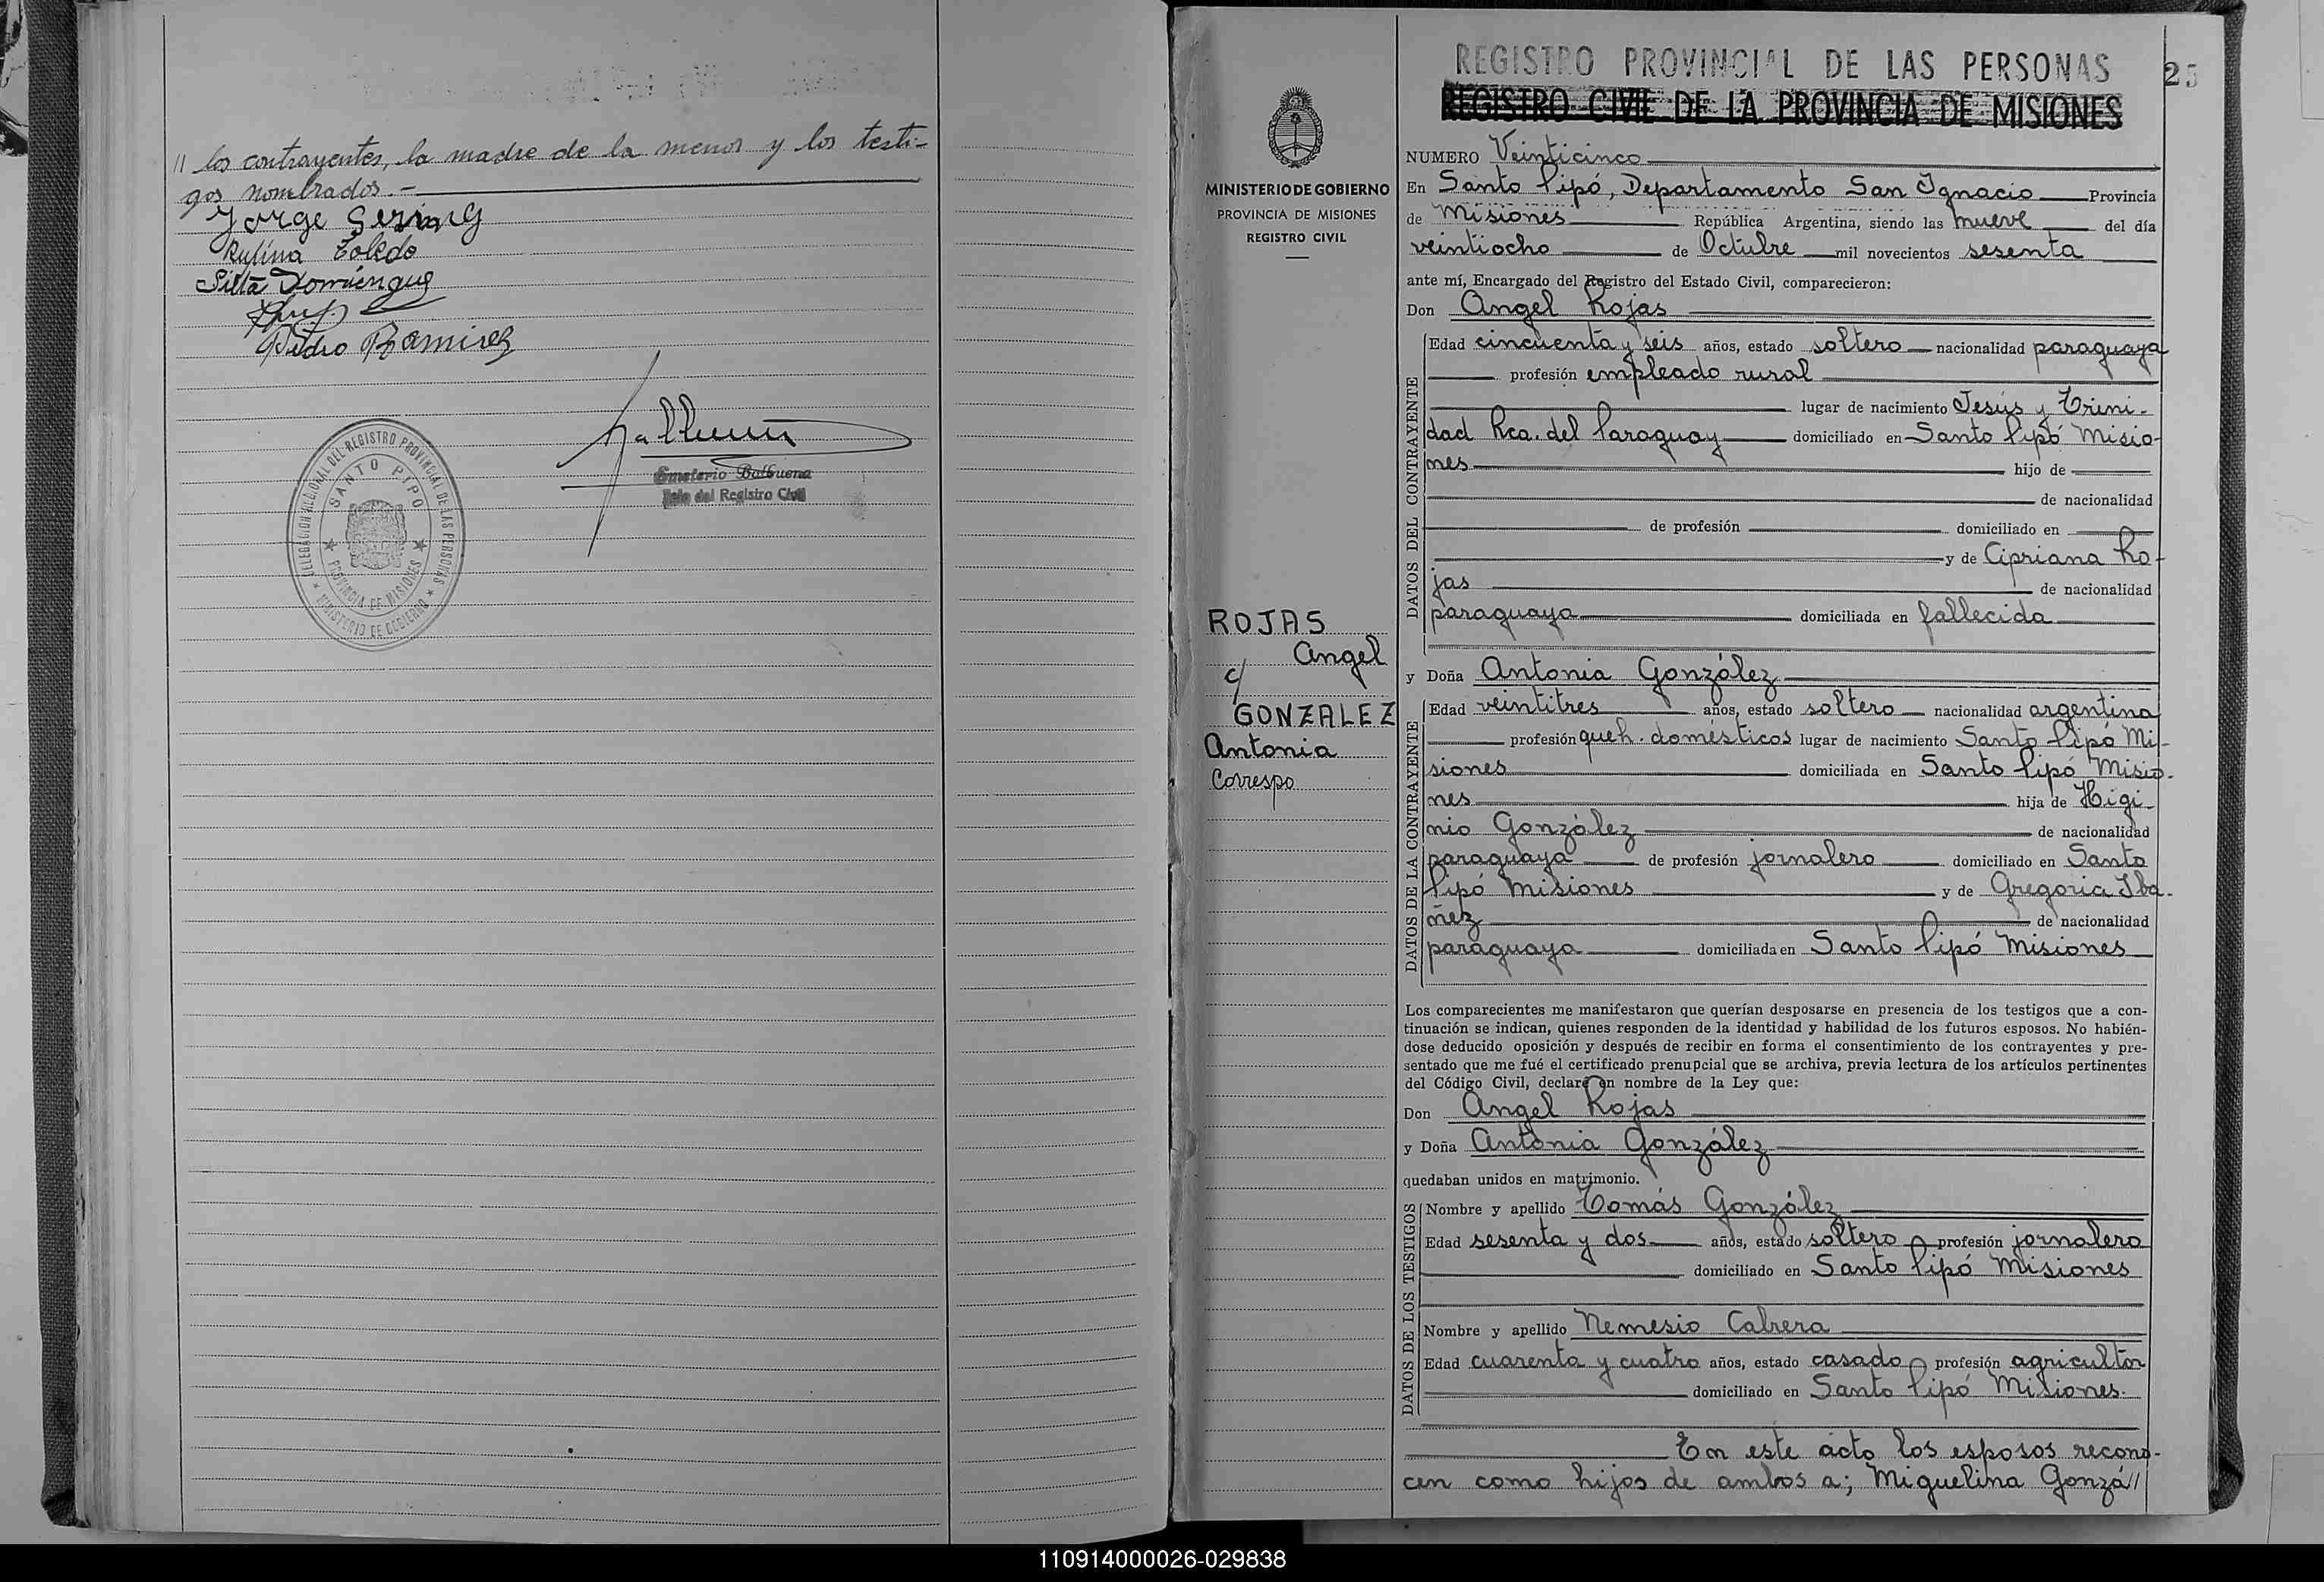 // los contrayentes, la madre de la menor y los testi-
gos nombrados.-
Jorge Gering
Rufina Toledo
Pedro Ramirez
Emeterio Balbuena
Jefe del Registro Civil
DELEGACION REGIONAL DEL REGISTRO PROVINCIAL DE LAS PERSONAS
SANTO PIPO
PROVINCIA DE MISIONES
MINISTERIO DE GOBIERNO
REGISTRO PROVINCIAL DE LAS PERSONAS
25
REGISTRO CIVIL DE LA PROVINCIA DE MISIONES
MINISTERIO DE GOBIERNO
PROVINCIA DE MISIONES
REGISTRO CIVIL
ROJAS
Angel
c/
GONZALEZ
Antonia
Correspo
NUMERO Veinticinco
En Santo Pipó, Departamento San Ignacio Provincia
de Misiones República Argentina, siendo las nueve del día
veintiocho de Octubre mil novecientos sesenta
ante mí, Encargado del Registro del Estado Civil, comparecieron:
Don Angel Rojas
DATOS DEL CONTRAYENTE
Edad cincuenta y seis años, estado soltero nacionalidad paraguaya
profesión empleado rural
lugar de nacimiento Jesús y Trini-
dad Rca. del Paraguay domiciliado en Santo Pipó Misio-
nes hijo de
de nacionalidad
de profesión domiciliado en
y de Cipriana Ro-
jas de nacionalidad
paraguaya domiciliada en fallecida
y Doña Antonia González
DATOS DE LA CONTRAYENTE
Edad veintitres años, estado soltero nacionalidad argentina
profesión queh. domésticos lugar de nacimiento Santo Pipó Mi-
siones domiciliada en Santo Pipó Misio-
nes hija de Higi-
nio González de nacionalidad
paraguaya de profesión jornalero domiciliado en Santo
Pipó Misiones y de Gregoria Iba-
ñez de nacionalidad
paraguaya domiciliada en Santo Pipó Misiones
Los comparecientes me manifestaron que querían desposarse en presencia de los testigos que a con-
tinuación se indican, quienes responden de la identidad y habilidad de los futuros esposos. No habién-
dose deducido oposición y después de recibir en forma el consentimiento de los contrayentes y pre-
sentado que me fué el certificado prenupcial que se archiva, previa lectura de los artículos pertinentes
del Código Civil, declaré en nombre de la Ley que:
Don Angel Rojas
y Doña Antonia González
quedaban unidos en matrimonio.
DATOS DE LOS TESTIGOS
Nombre y apellido Tomás González
Edad sesenta y dos años, estado soltero profesión jornalero
domiciliado en Santo Pipó Misiones
Nombre y apellido Nemesio Cabrera
Edad cuarenta y cuatro años, estado casado profesión agricultor
domiciliado en Santo Pipó Misiones.
En este acto los esposos recono-
cen como hijos de ambos a; Miguelina Gonzá//
110914000026-029838